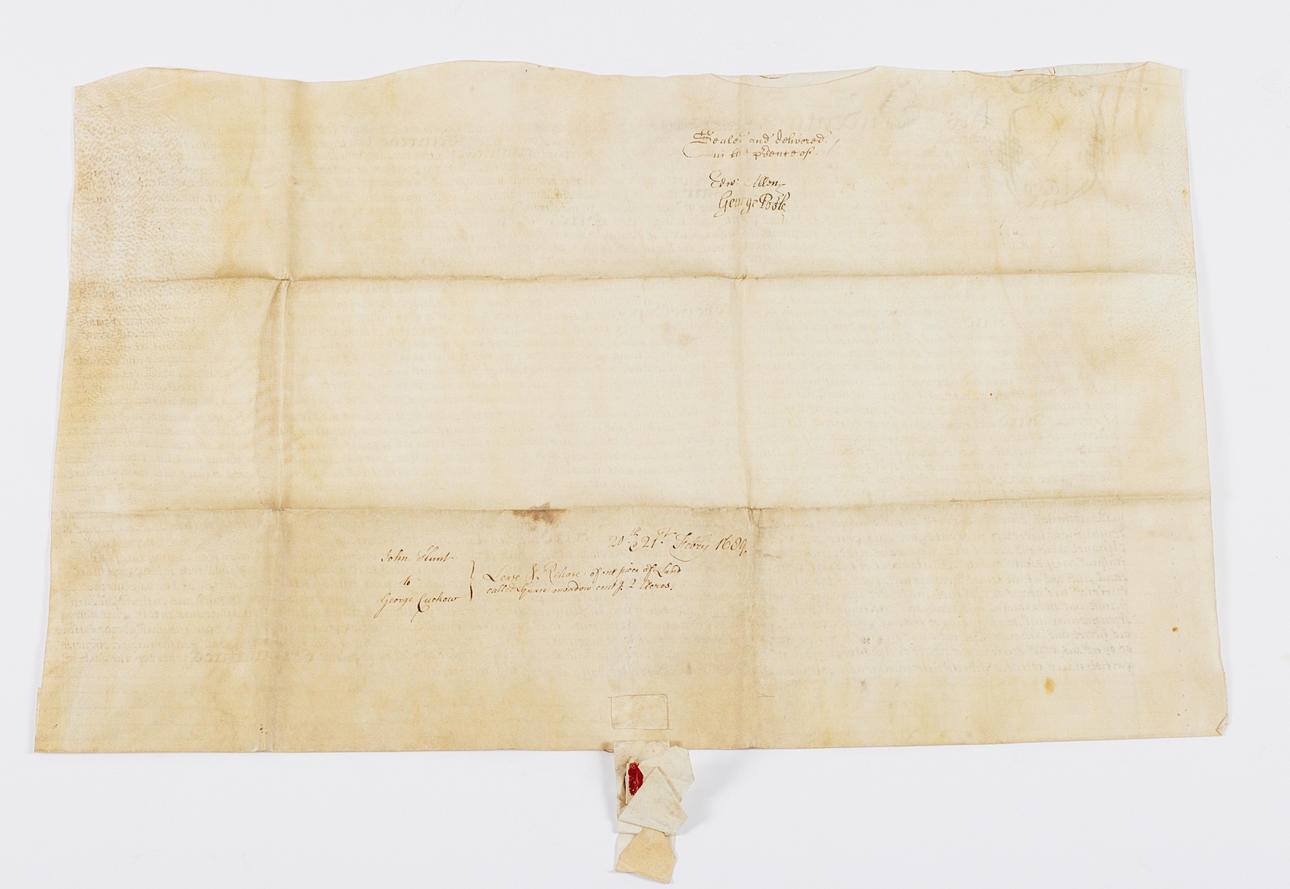 Sealed and delivered
in the p̱sence of
Edw: Allen
George Poole
20th & 21st Febry 1689.
John Hunt
to
George Cuckow
Lease & Release of one piece of Land
called meadow cont p. 2 Acres.